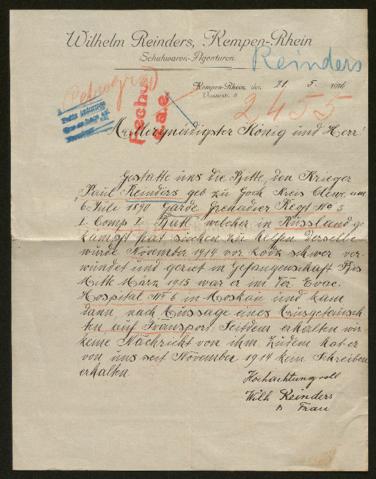 Wilhelm Reinders, Kempen-Rhein
Schuhwaren-Agenturen.
Reinders
Kempen-Rhein, den 21 5 1916
2455
Allergnädigster König und Herr
Gestatte uns die Bitte, den Krieger
Paul Reinders geb zu Goch Kreis Cleve, am
6 Juli 1890 Garde Grenadier Regt No 5
1. Comp I. Batt welcher in Russland ge
kämpft hat suchen zu helfen derselbe
wurde November 1914 vor Lodz schwer ver
wundet und geriet in Gefangenschaft Bis
Mitte März 1915 war er im der Evac.
Hospital No 6 in Moskau und kam
dann, nach Aussage eines Ausgetausch
ten auf Transport, Seitdem erhalten wir
keine Nachricht von ihm Zudem hat er
von uns seit November 1914 kein Schreiben
erhalten
Hochachtungsvoll
Wilh Reinders
u Frau